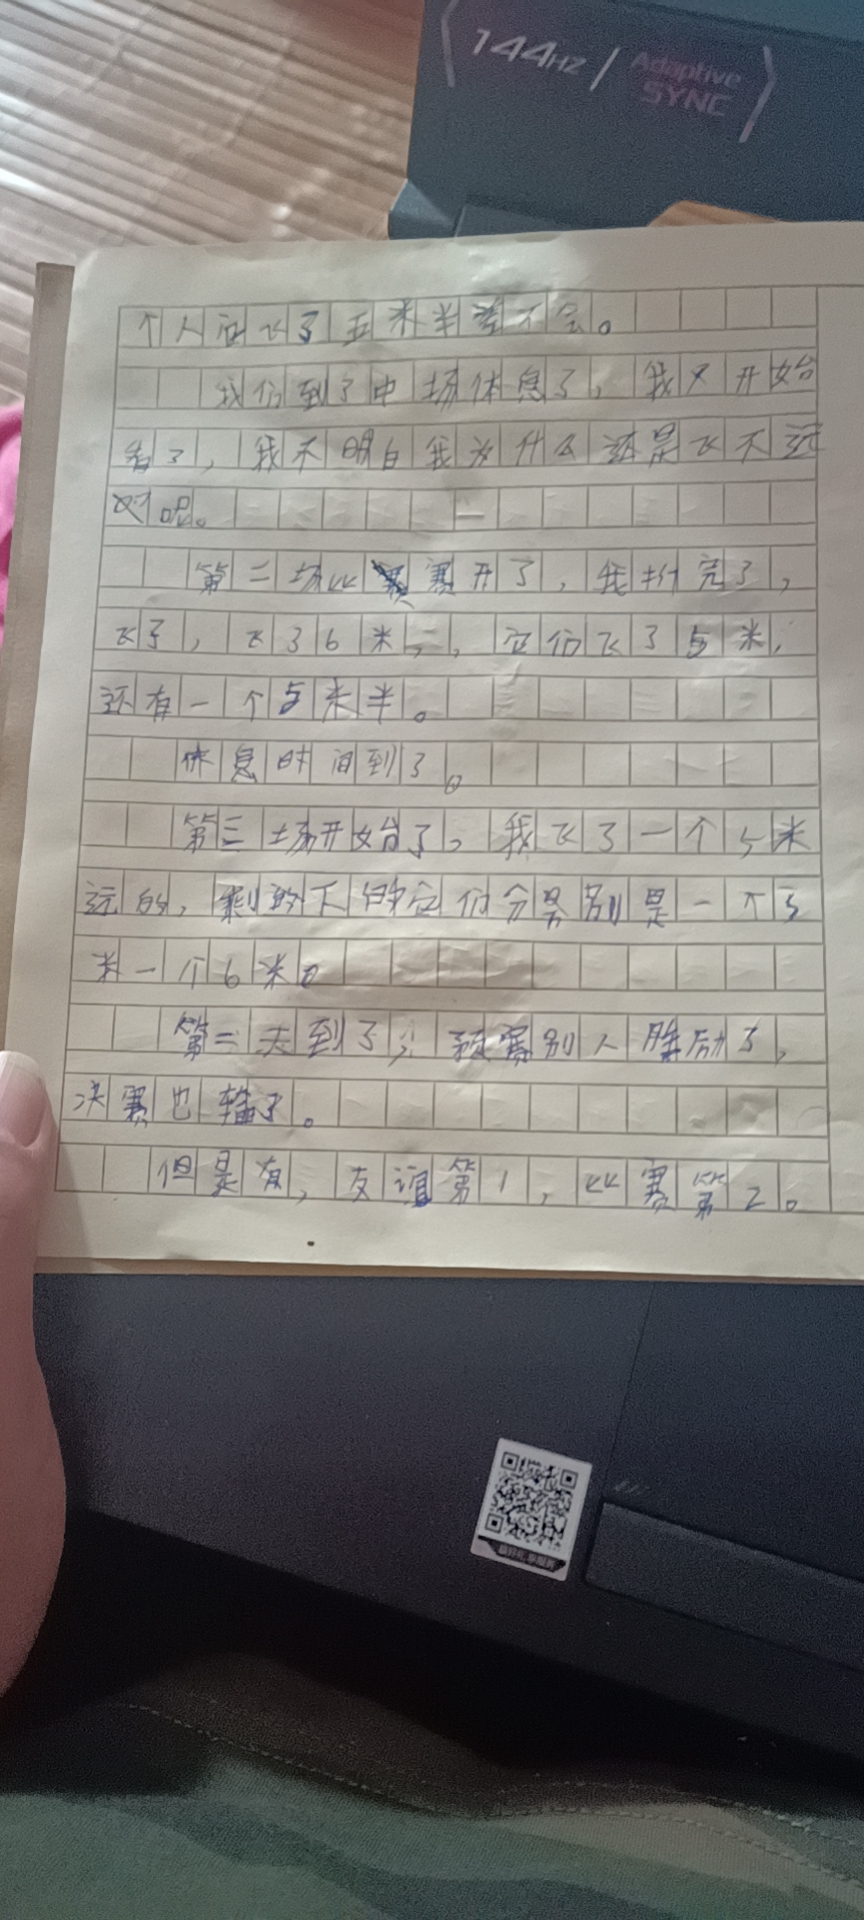 144Hz / Adaptive SYNC
个人应飞了五米半
我们到了中场休息了，我又开始
了，我不明白我为什么还是飞不远
呢。
第二场比赛开了，我折完了，
飞了，飞了6米，它们飞了5米，
还有一个5米半。
休息时间到了。
第三场开始了，我飞了一个5米
远的，剩的下的它们分别是一个3
米一个6米。
第二天到了，预赛别人胜励了，
决赛也输了。
但是有，友谊第1，比赛第2。